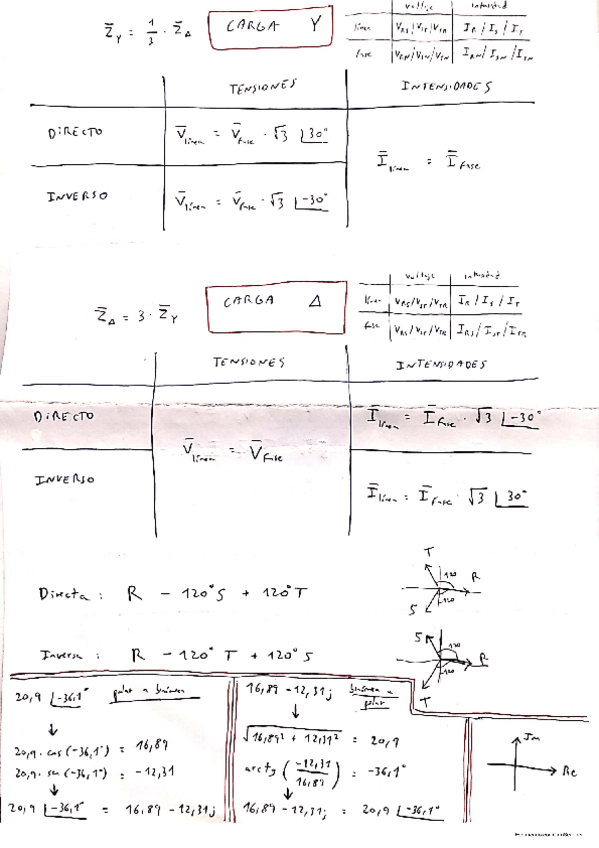 Z̄Y = 1/3 · Z̄Δ
CARGA Y
voltaje intensidad
línea VRS/VST/VTR IR / IS / IT
fase VRN/VSN/VTN IRN/ISN/ITN
TENSIONES INTENSIDADES
DIRECTO V̄línea = V̄fase · √3 |30°
Īlínea = Īfase
INVERSO V̄línea = V̄fase · √3 |-30°
Z̄Δ = 3 · Z̄Y
CARGA Δ
voltaje intensidad
línea VRS/VST/VTR IR / IS / IT
fase VRS/VST/VTR IRS/IST/ITR
TENSIONES INTENSIDADES
DIRECTO Īlínea = Īfase · √3 |-30°
V̄línea = V̄fase
INVERSO Īlínea = Īfase · √3 |30°
Directa: R - 120° S + 120° T
T 120 R
S 120
Inversa: R - 120° T + 120° S
S 120 R
T 120
20,9 |-36,1° polar a binómica
↓
20,9 · cos (-36,1°) = 16,89
20,9 · sen (-36,1°) = -12,31
↓
20,9 |-36,1° = 16,89 - 12,31j
16,89 - 12,31j binómica a polar
↓
√16,89² + 12,31² = 20,9
arctg (-12,31/16,89) = -36,1°
↓
16,89 - 12,31j = 20,9 |-36,1°
Jm
Re